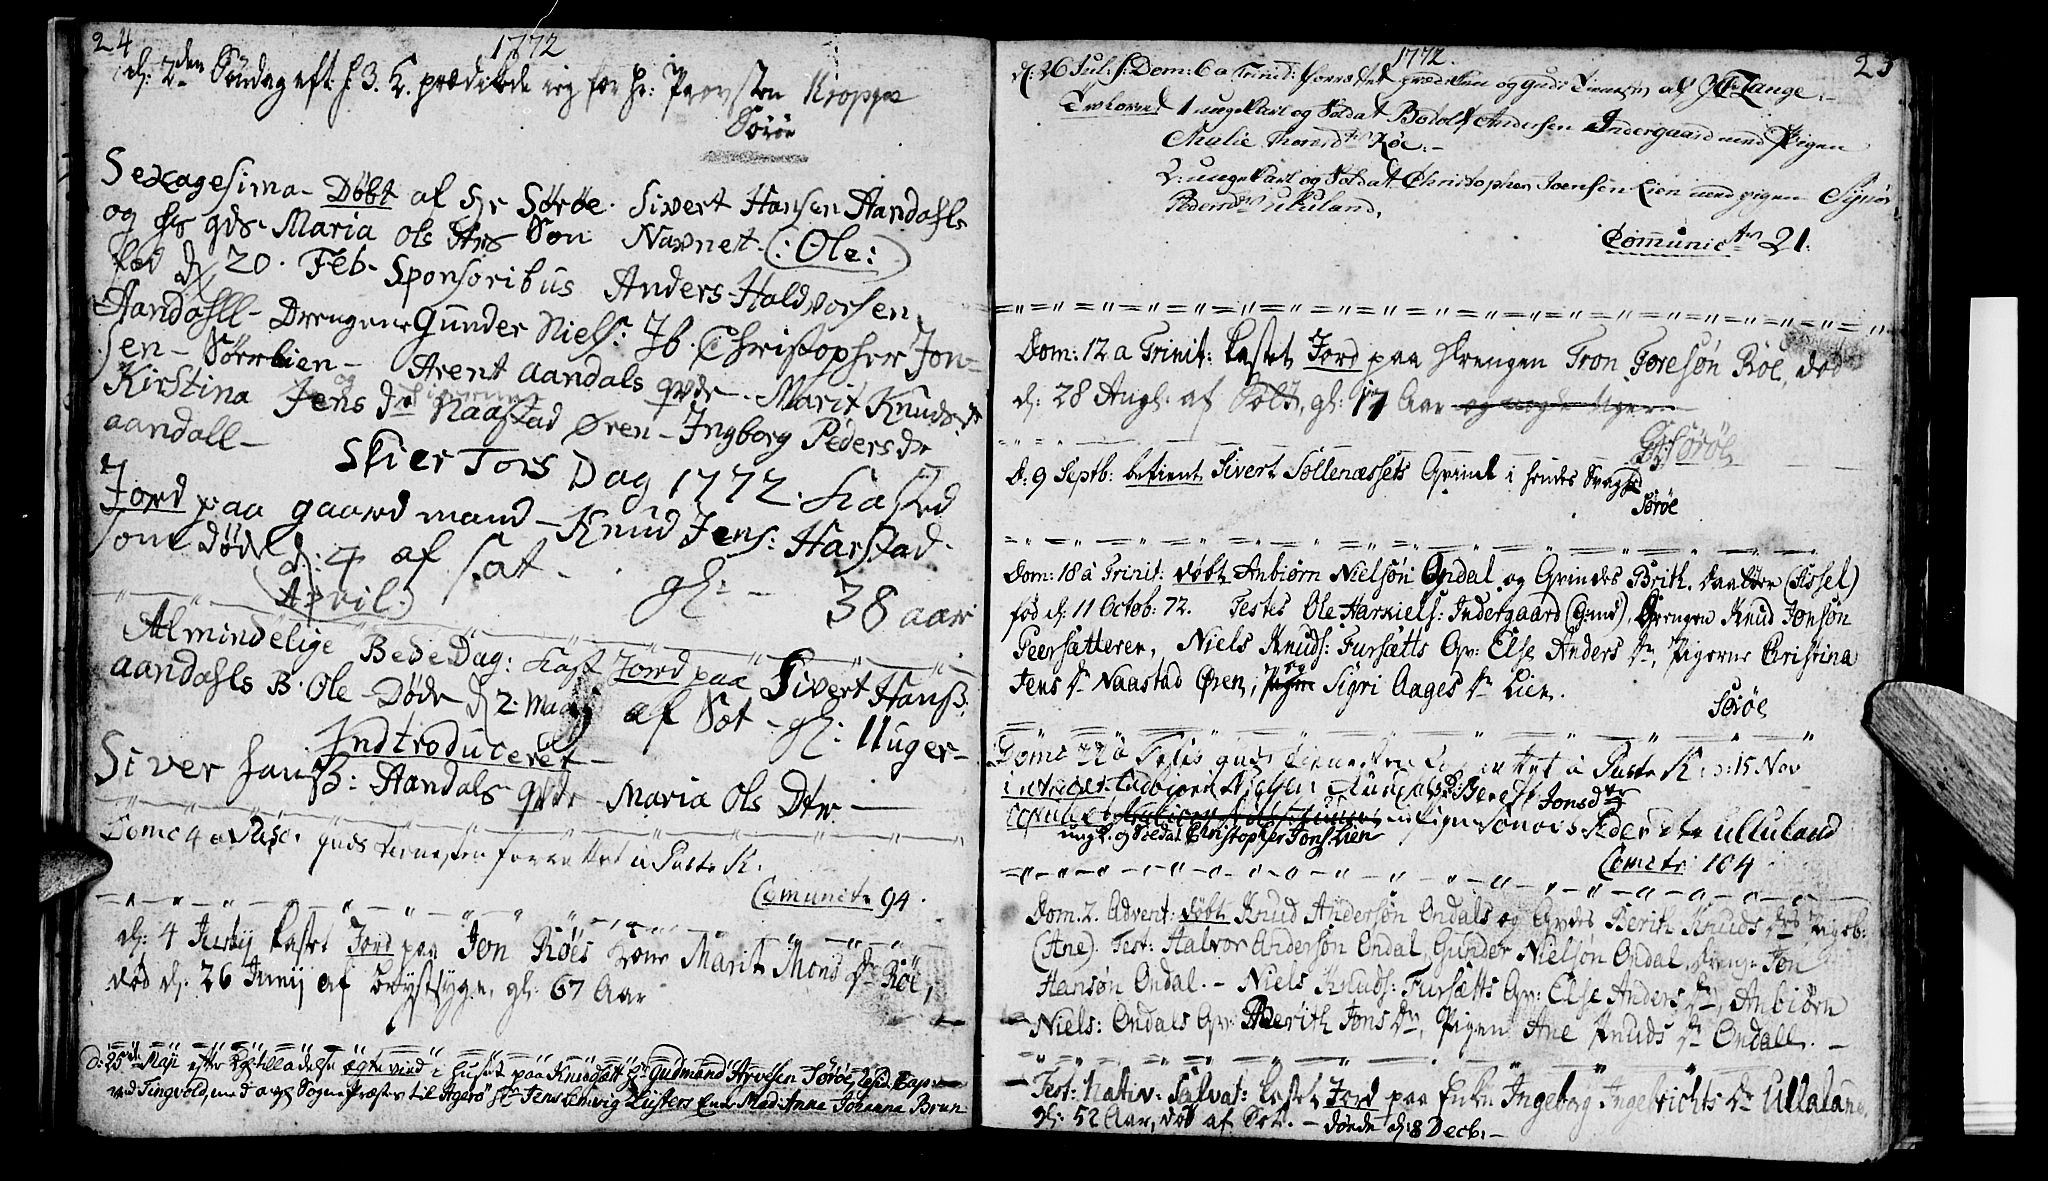 24
1772
d: 2den Søndag eft: H. 3. K. prædikede jeg for Hr: Provsten Kroppe
Sørøe
Sexagesima - Døbt af Hr Sørøe. Sivert Hansen Aandahls
og hs qds Maria Ols Søn Navnet (: Ole:)
fød d 20. Feb. Sponsoribus Anders Haldvorsen
Aandahll - Drengene Gunder Niels: Ib. Christopher Jon-
sen - Sørrlien - Arent aandals qvde - Marit Knuds dr
Kirstina Jens dr Naastad Øren - Ingborg Peders dr
og
aandall -
Skier Tors Dag 1772. Kasted
Jord paa gaard mand - Knud Jens: Harstad
som Døde d: 4 af Sat - gl: - 38 aar
(April.)
Almindelige Bede Dag: Kast Jord paa Sivert Hanss:
aandahls B. Ole - Døde d 2. Maij af Sot - gl: 11 uger -
Indtroduceret -
Siver Hanss: Aandals qvde - Maria Ols Dtr -
Domc 4 a Pasc. guds tienesten forrettet a Past: K.
Comunicte 94.
d: 4 Julij kastet Jord paa Jon Röes Kone Marit Mons Dr Röe,
død d: 26 Junij af Brystsyge, gl: 67 Aar
d: 25de Maji efter Kgl tilladelse egte vied i Huset paa Hr Gudmand Arvesen Sørøe, resid: Cap:
ved Tingvold, med afg: Sogne Præstes til Agerø Hr Jens Ludvig Lysters Enke Mad: Anna Johanna Brun
1772.
25
d: 26 Jul: s: Dom: 6 a Trinid: forrætted prædiken og guds Tienesten af J F Lange.-
Trolovet 1 unge karl og Soldat Bodolf Andersen Indergaard med Pigen
Malie Thorersdr Røe.-
2: unge karl og Soldat Christopher Joensen Lien med pigen Signor
Pedersdr Ulluland.
Comunic ter 21.
Dom: 12 a Trinit: kastet Jord paa drengen Tron Toresøn Röe, død
d: 28 Aug: af Sott, gl: 17 Aar
G: Sørøe
d: 9 Septb: betient Sivert Sollenæssets Qvinde i hendes Svaghed
Sørøe
Dom: 18 a Trinit: døbt Anbiørn Nielsøn Ondal og Qvindes Brith. Daatter (Sissel)
fød d: 11 Octob: 72. Testes Ole Harkiels: Indergaard (gmd), Drengen Knud Jonsøn
Peersætteren, Niels Knuds: Fursætts Qv: Else Anders dr, Pigerne Christina
Jens dr Naastad Øren, og Sigri Aages dr Lien.
Sørøe
Domc 22 a Trin guds tienesten forrettet a Past: K: d: 15 Nov
introdc: Endbiorn Nielsen Aandahls Q: Beret Jonsdtr
Copulert
ung k. og Soldat Christopher Jons: Lien med pigen Sonois: Peders dtr Ulluland
Comcte 104
Dom. 2. Advent: døbt Knud Andersøn Ondals og Qvdes Berith Knuds drs Pigeb:
(Ane). Test: Halvor Andersøn Ondal, Gunder Nielsøn Ondal, dreng: Jon
Hansøn Ondal. - Niels Knuds: Fursætts Qv: Else Anders dr, Anbiørn
Niels: Ondals Qv: Berith Jons dr, Pigen Ane Knuds dr Ondall. -
Fest: Nativ: Salvat: kastet Jord paa Enken Ingeborg Ingebrichts dr Ullaland,
gl: 52 Aar, død af Sot. - døede d: 8 Decb: -